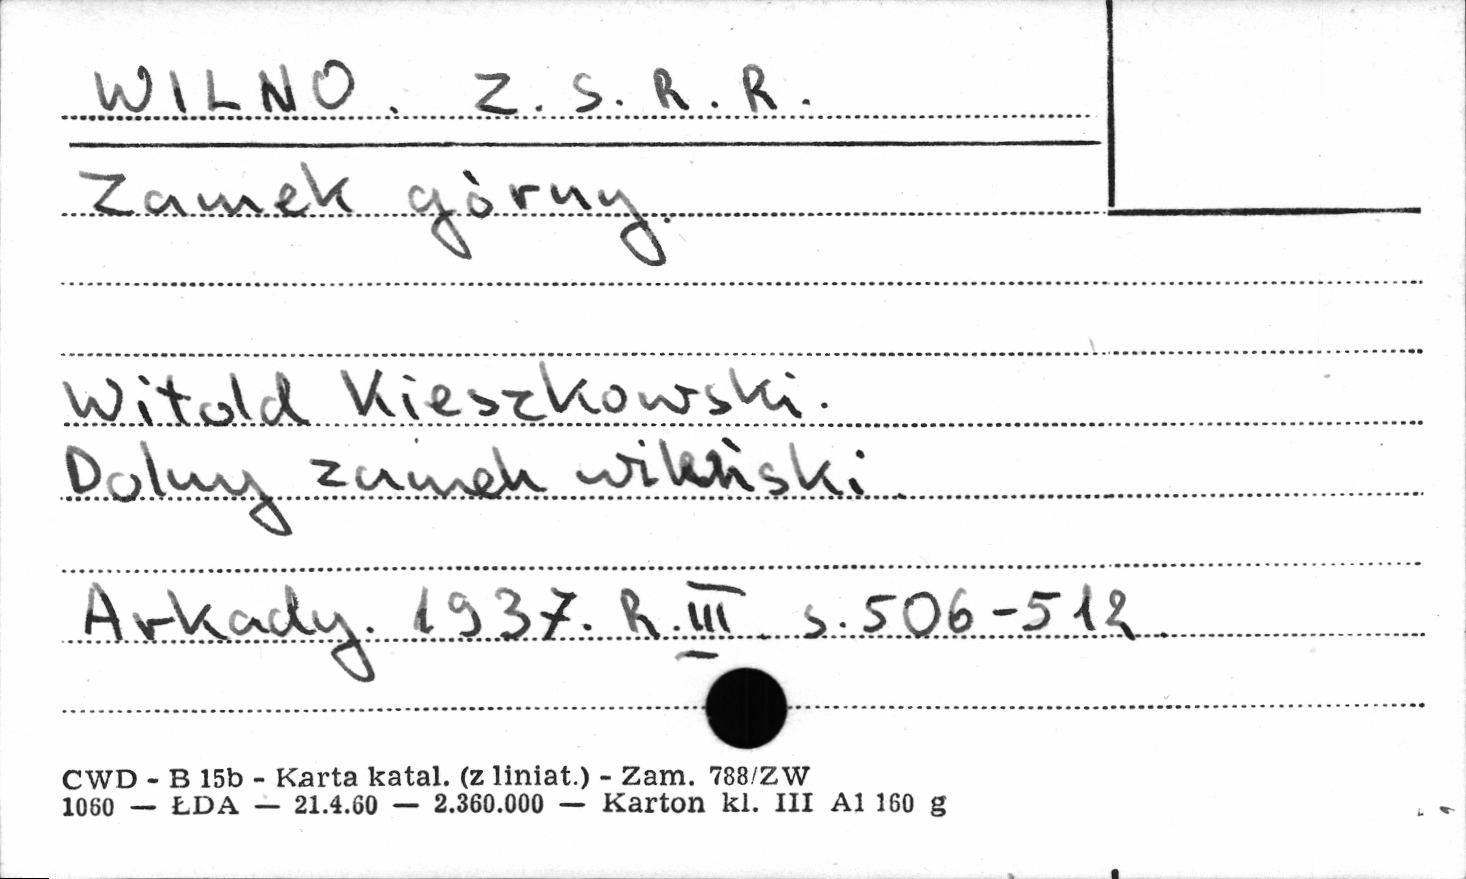 WILNO. Z. S. R. R.
Zamek górny.
Witold Kieszkowski.
Dolny zamek wileński.
Arkady. 1937. R. III. s. 506-512.
CWD - B 15b - Karta katal. (z liniat.) - Zam. 788/ZW
1060 — ŁDA — 21.4.60 — 2.360.000 — Karton kl. III A1 160 g